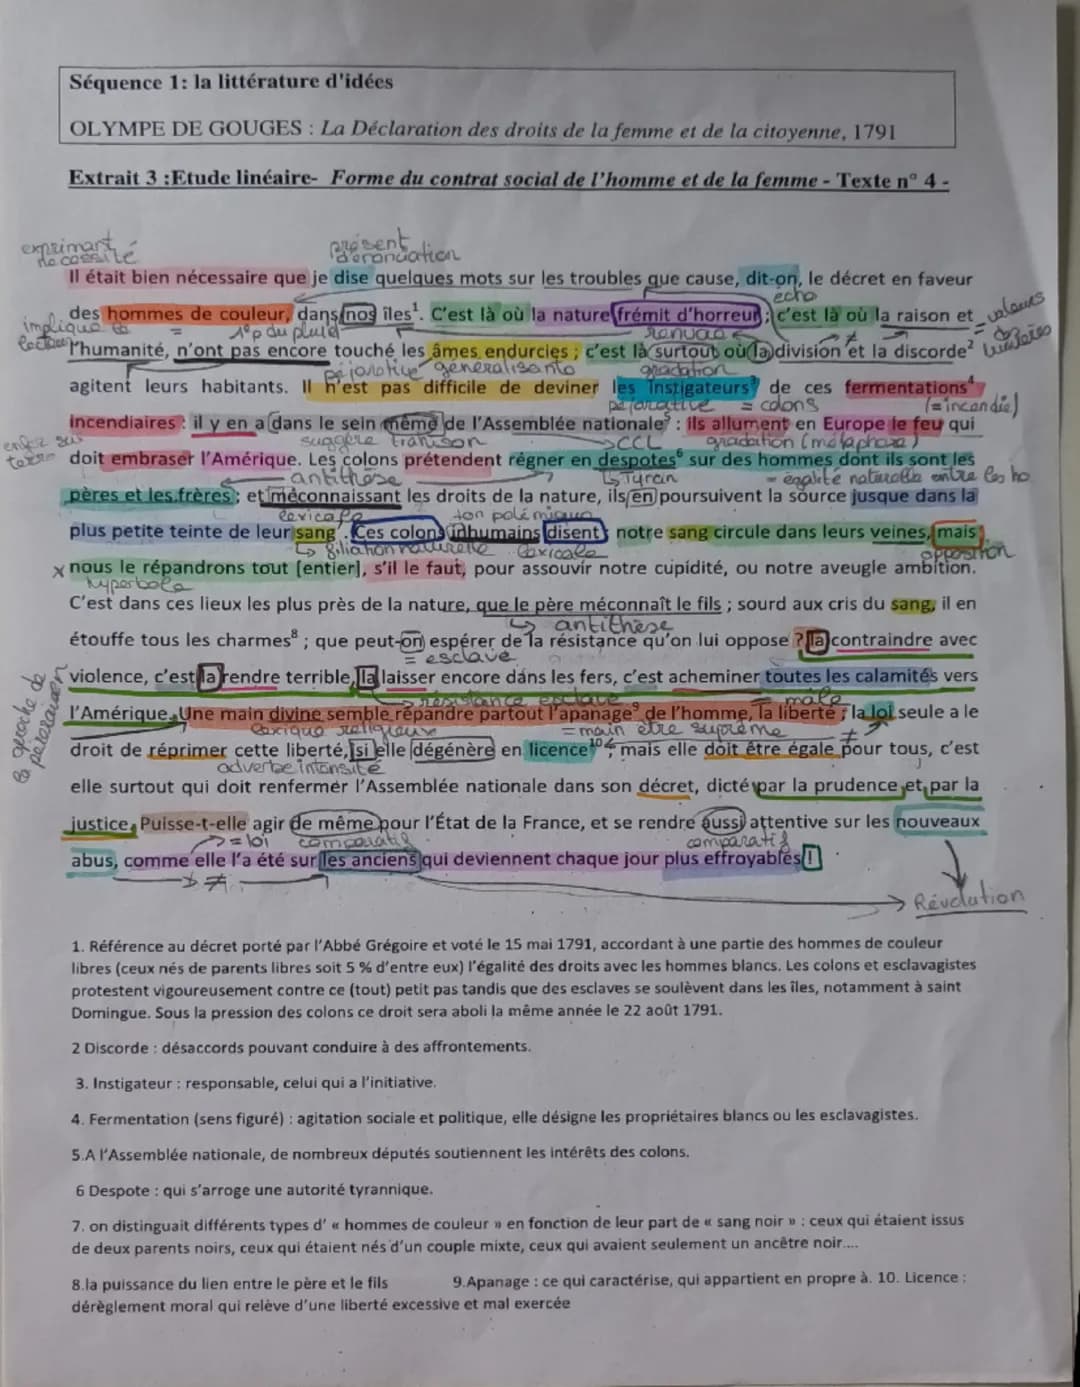 Séquence 1: la littérature d'idées
OLYMPE DE GOUGES : La Déclaration des droits de la femme et de la citoyenne, 1791
Extrait 3 :Etude linéaire- Forme du contrat social de l'homme et de la femme - Texte n° 4 -
exprimant nécessité
présent d'énonciation
Il était bien nécessaire que je dise quelques mots sur les troubles que cause, dit-on, le décret en faveur
écho
des hommes de couleur, dans nos îles¹. C'est là où la nature frémit d'horreur ; c'est là où la raison et
= valeurs lumières
implique le lecteur
= 1°p du pluriel
l'humanité, n'ont pas encore touché les âmes endurcies ; c'est là surtout où la division et la discorde²
péjorative généralisante
gradation
agitent leurs habitants. Il n'est pas difficile de deviner les instigateurs³ de ces fermentations⁴
péjorative = colons
(= incendie)
incendiaires : il y en a dans le sein même de l'Assemblée nationale⁵ : ils allument en Europe le feu qui
suggère trahison
CCL
gradation (métaphore)
enfer sur terre
doit embraser l'Amérique. Les colons prétendent régner en despotes⁶ sur des hommes dont ils sont les
antithèse
Tyran
= égalité naturelle entre les ho
pères et les frères ; et méconnaissant les droits de la nature, ils en poursuivent la source jusque dans la
lexicale
ton polémique
plus petite teinte de leur sang⁷. Ces colons inhumains disent : notre sang circule dans leurs veines, mais
filiation naturelle
lexicale
opposition
x nous le répandrons tout [entier], s'il le faut, pour assouvir notre cupidité, ou notre aveugle ambition.
hyperbole
C'est dans ces lieux les plus près de la nature, que le père méconnaît le fils ; sourd aux cris du sang, il en
antithèse
étouffe tous les charmes⁸ ; que peut-on espérer de la résistance qu'on lui oppose ? la contraindre avec
= esclave
violence, c'est la rendre terrible, la laisser encore dans les fers, c'est acheminer toutes les calamités vers
résistance esclave
= mâle
l'Amérique. Une main divine semble répandre partout l'apanage⁹ de l'homme, la liberté ; la loi seule a le
lexique religieux
= main être suprême
droit de réprimer cette liberté, si elle dégénère en licence¹⁰ ; mais elle doit être égale pour tous, c'est
adverbe intensité
elle surtout qui doit renfermer l'Assemblée nationale dans son décret, dicté par la prudence et par la
justice. Puisse-t-elle agir de même pour l'État de la France, et se rendre aussi attentive sur les nouveaux
= loi
comparatif
comparatif
abus, comme elle l'a été sur les anciens qui deviennent chaque jour plus effroyables !
≠
Révolution
1. Référence au décret porté par l'Abbé Grégoire et voté le 15 mai 1791, accordant à une partie des hommes de couleur
libres (ceux nés de parents libres soit 5 % d'entre eux) l'égalité des droits avec les hommes blancs. Les colons et esclavagistes
protestent vigoureusement contre ce (tout) petit pas tandis que des esclaves se soulèvent dans les îles, notamment à saint
Domingue. Sous la pression des colons ce droit sera aboli la même année le 22 août 1791.
2 Discorde : désaccords pouvant conduire à des affrontements.
3. Instigateur : responsable, celui qui a l'initiative.
4. Fermentation (sens figuré) : agitation sociale et politique, elle désigne les propriétaires blancs ou les esclavagistes.
5.A l'Assemblée nationale, de nombreux députés soutiennent les intérêts des colons.
6 Despote : qui s'arroge une autorité tyrannique.
7. on distinguait différents types d' « hommes de couleur » en fonction de leur part de « sang noir » : ceux qui étaient issus
de deux parents noirs, ceux qui étaient nés d'un couple mixte, ceux qui avaient seulement un ancêtre noir....
8.la puissance du lien entre le père et le fils 9.Apanage : ce qui caractérise, qui appartient en propre à. 10. Licence :
dérèglement moral qui relève d'une liberté excessive et mal exercée